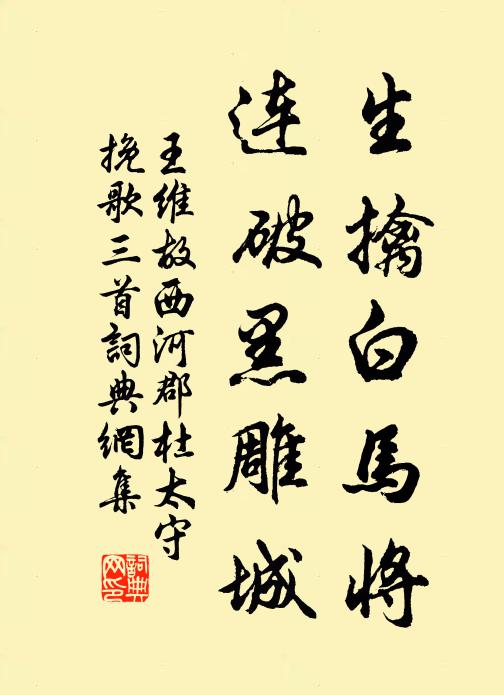 生擒白馬将
連破黑雕城
王維故西河郡杜太守
挽歌三首詞典網集
詞典网印